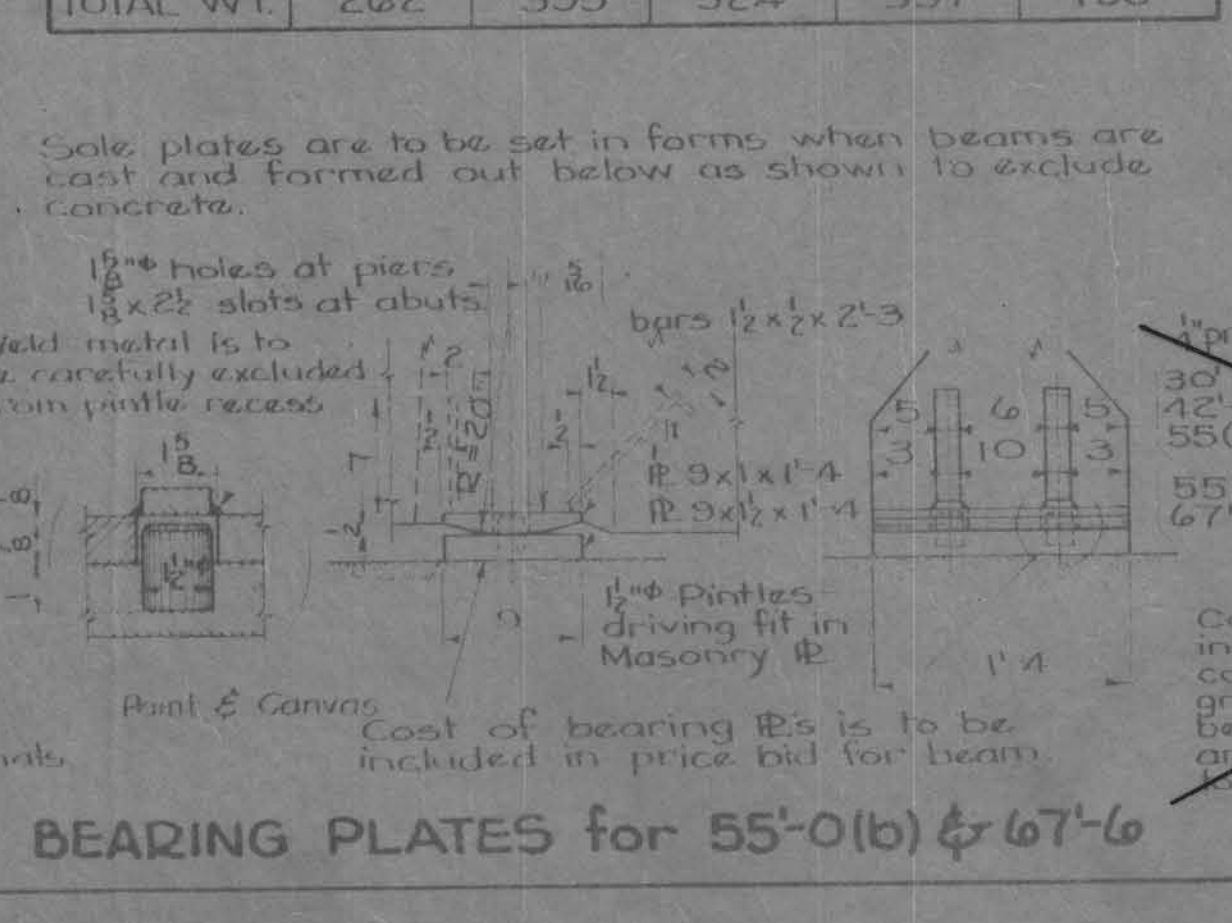 TOTAL WT. 262
Sole plates are to be set in forms when beams are
cast and formed out below as shown to exclude
concrete.
1 5/8"ϕ holes at piers
1 5/8 x 2 1/2 slots at abuts.
metal is to
carefully excluded
pintle recess
5/16
bars 1 1/2 x 1/2 x 2'-3
2
1 1/2
R=20"
7
1 5/8
1 1/2"ϕ
5 6 5
3 10 3
℄ 9 x 1 x 1'-4
℄ 9 x 1 1/2 x 1'-4
1 1/2"ϕ Pintles
driving fit in
Masonry ℄
9
1'-4
Paint & Canvas
Cost of bearing ℄s is to be
included in price bid for beam.
30'
42'
55
67
BEARING PLATES for 55'-0(b) & 67'-6